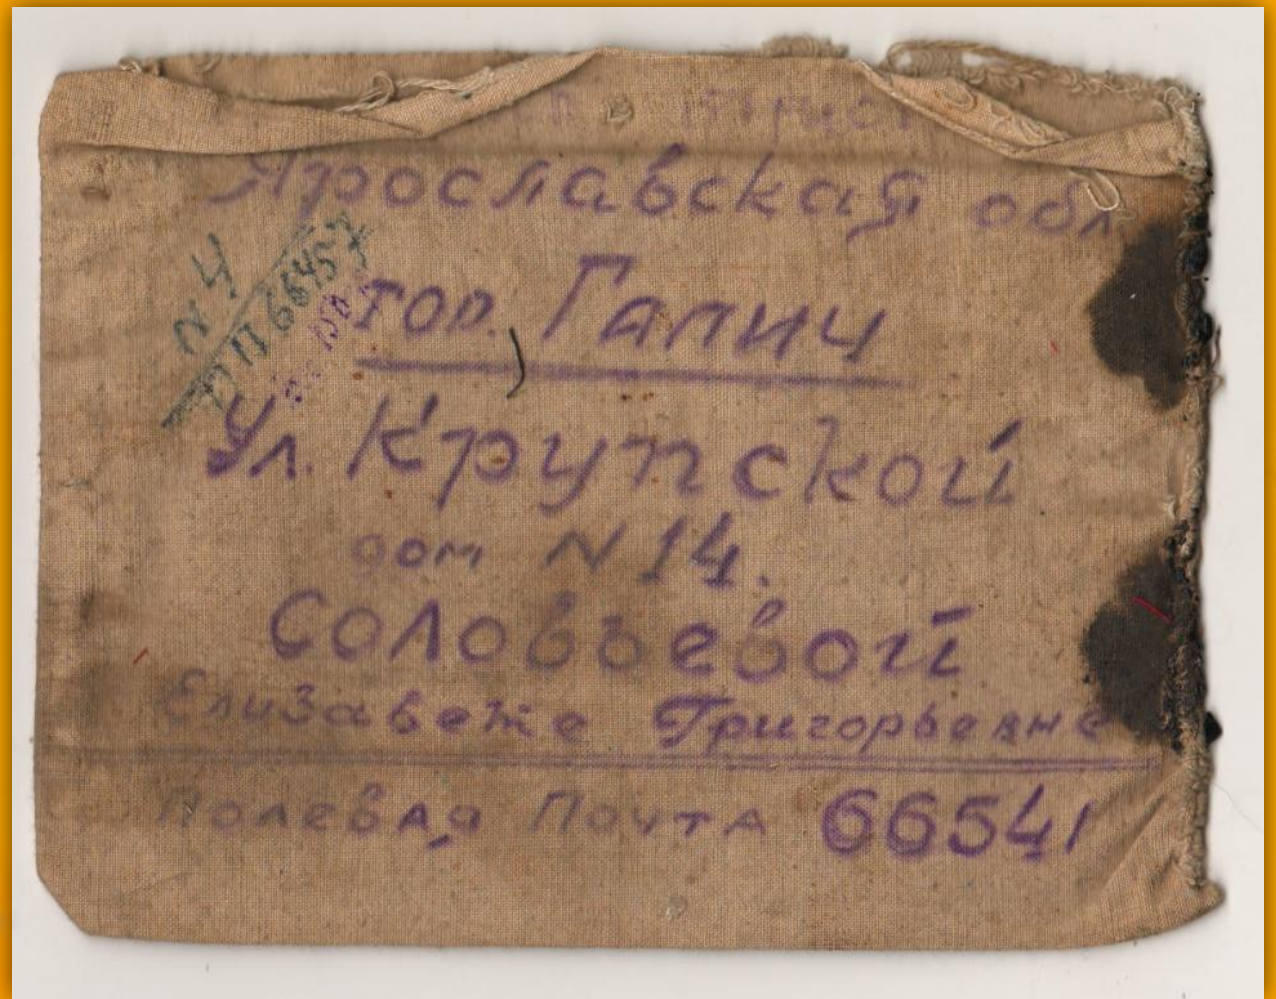 Ярославская обл
N 4
ПП 66457
гор. Галич
Ул. Крупской
дом N 14.
Соловьевой
Елизавеже Григорьевне
Полевая Почта 66541